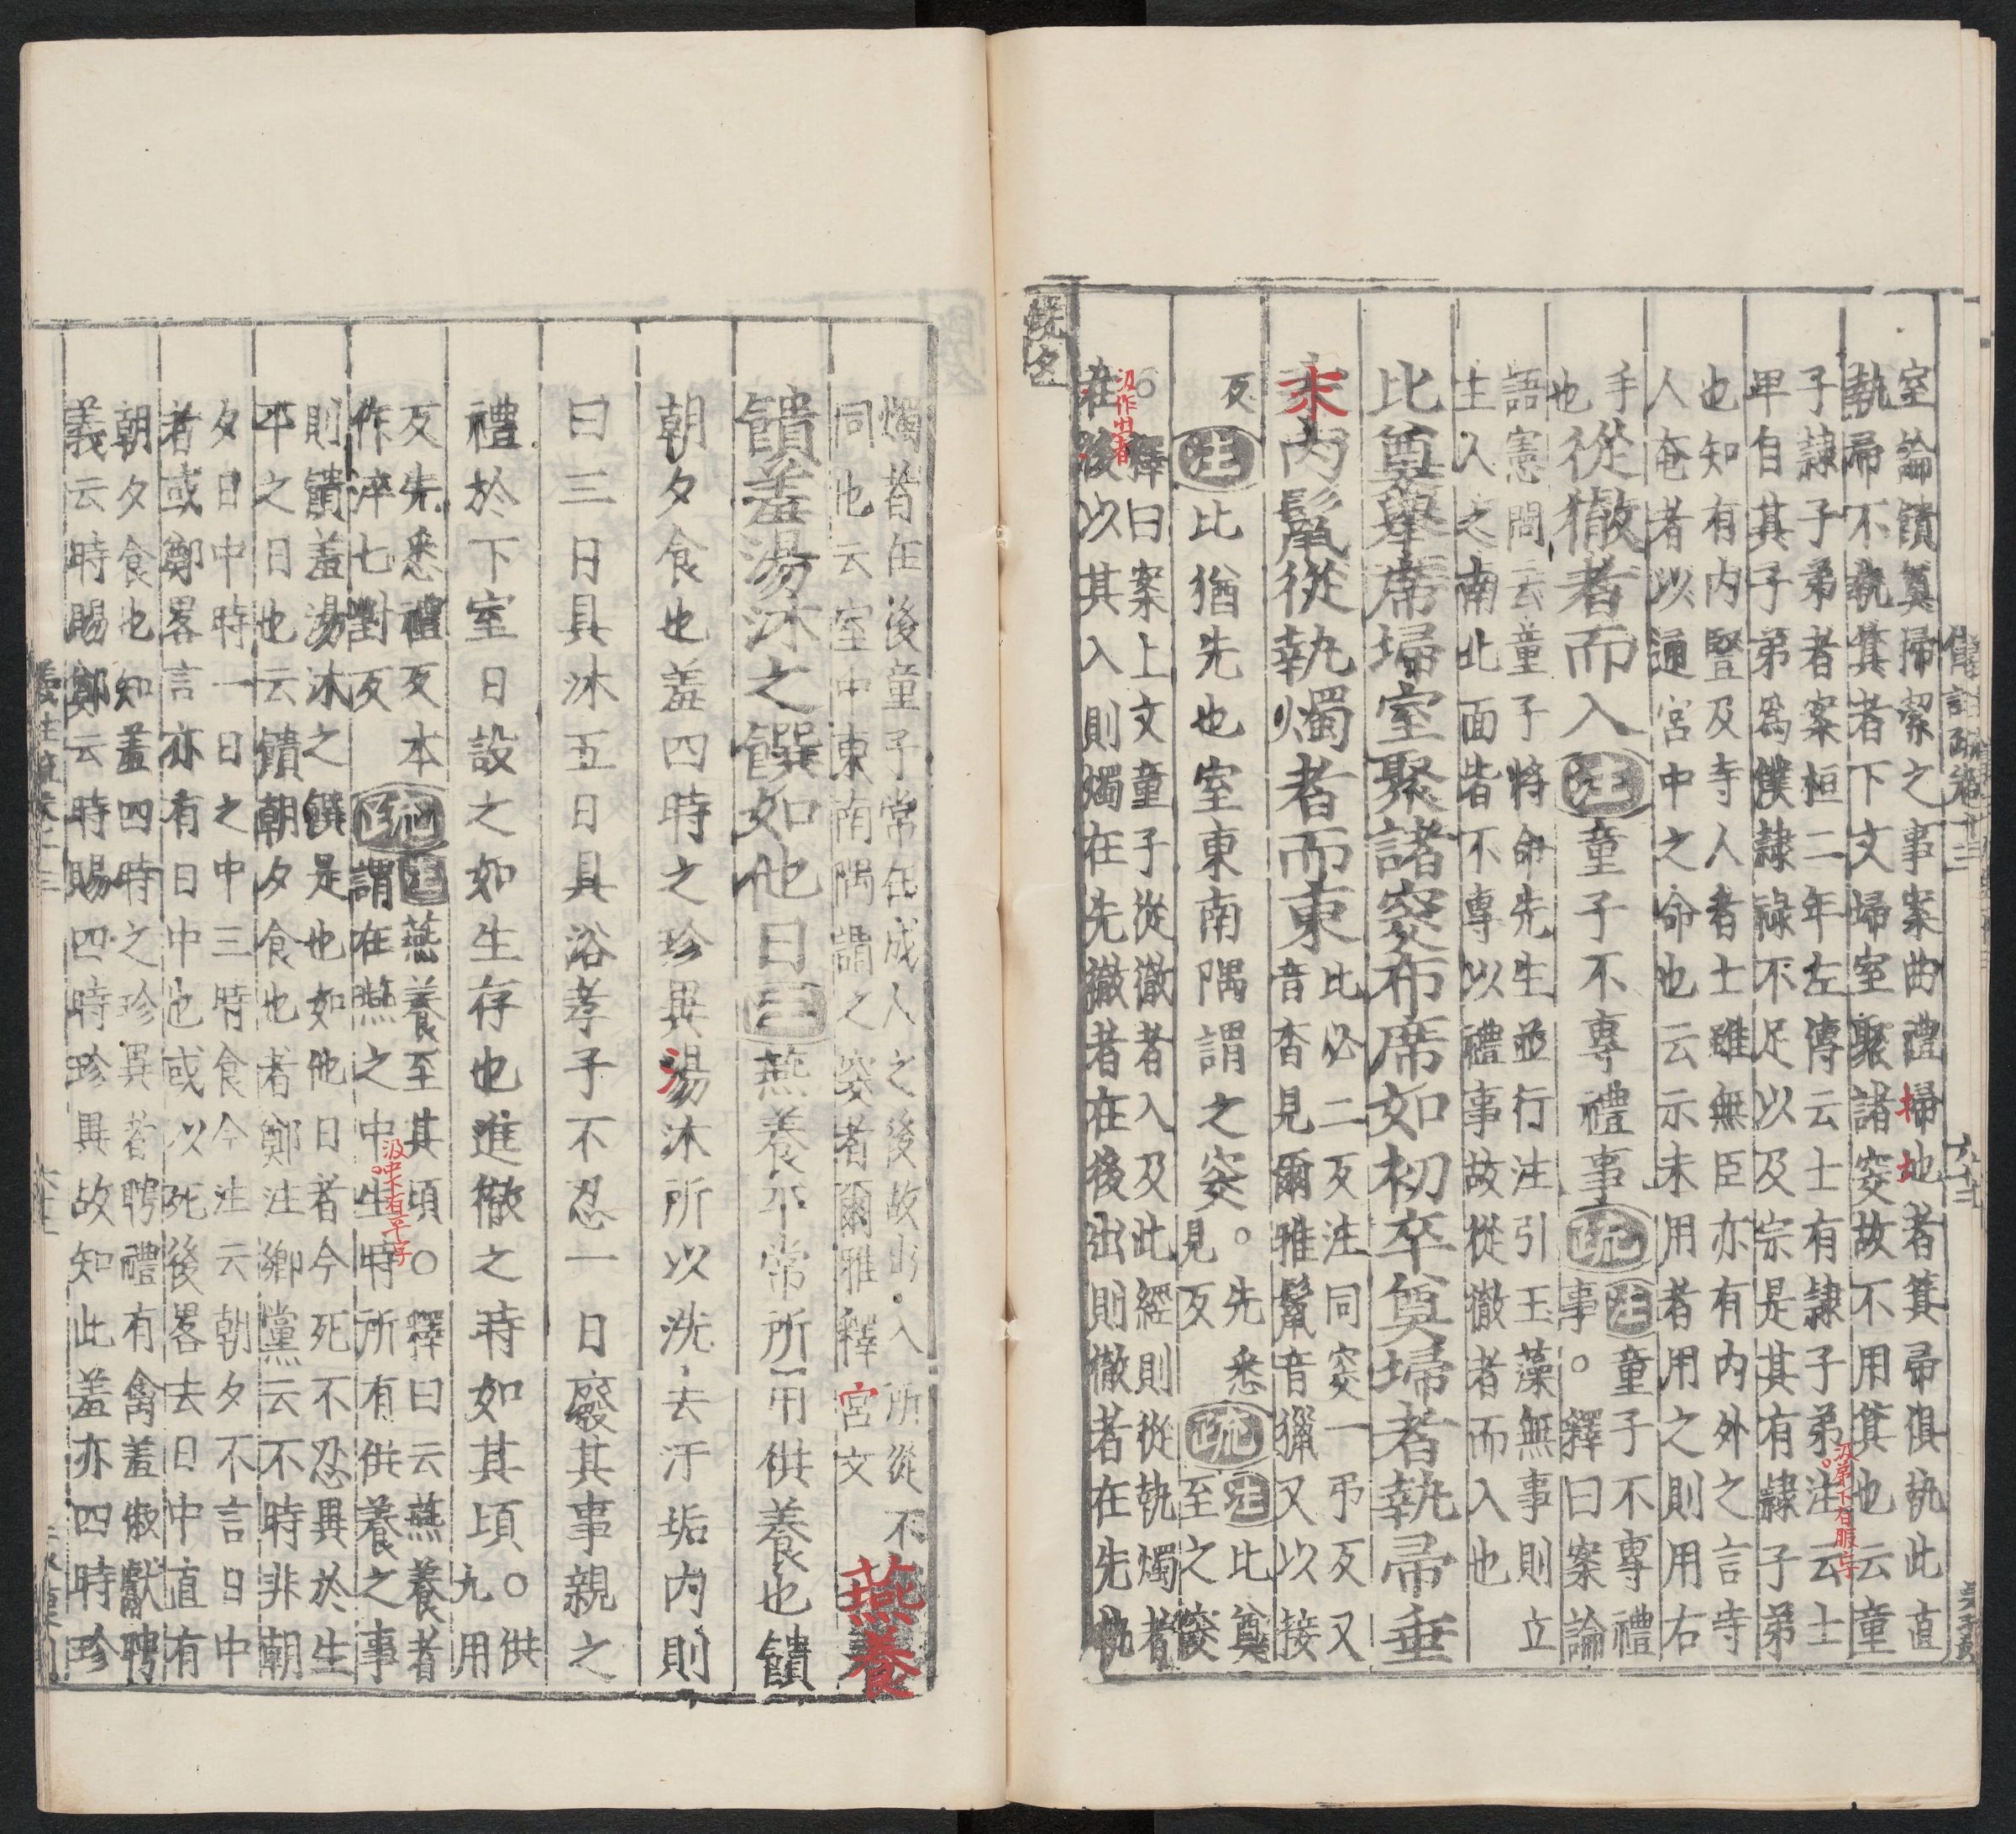 儀註疏卷十三
六十五
室論饋奠掃絜之事案曲禮掃地者箕帚俱執此直
執帚不執箕者下文埽室聚諸窔故不用箕也云童
子隷子弟者案桓二年左傳云士有隷子弟注云士
卑自其子弟爲僕隷祿不足以及宗是其有隷子弟
汲弟下有服字
也知有内豎及寺人者士雖無臣亦有内外之言寺
人奄者以通宫中之命也云示未用者用之則用右
手
也
從徹者而入注童子不專禮事疏
注童子不專禮
事。釋曰案論
語憲問云童子將命先生並行注引玉藻無事則立
主人之南北面皆不專以禮事故從徹者而入也
比奠舉席埽室聚諸窔布席如初卒奠埽者執帚垂
末内鬣從執燭者而東
比必二反注同窔一弔反又
音杳見爾雅鬣音獵又以接
反
注比猶先也室東南隅謂之窔。
先悉
見反
疏
注比奠
至之窔
。釋曰案上文童子從徹者入及此經則從執燭者
在後以其入則燭在先徹者在後出則徹者在先執
汲作出者
既夕
燭者在後童子常在成人之後故出入所從不
同也云室中東南隅謂之窔者爾雅釋宮文
燕養
饋羞湯沐之饌如他日注燕養平常所用供養也饋
朝夕食也羞四時之珍異湯沐所以洗去汙垢内則
曰三日具沐五日具浴孝子不忍一日廢其事親之
禮於下室日設之如生存也進徹之時如其頃。
供
九用
反先悉禮反本
作淬七對反
疏
注燕養至其頃。釋曰云燕養者
謂在燕之中生時所有供養之事
汲中下有平字
則饋羞湯沐之饌是也如他日者今死不忍異於生
平之日也云饋朝夕食也者鄭注鄉黨云不時非朝
夕日中時一日之中三時食今注云朝夕不言日中
者或鄭畧言亦有日中也或以死後畧去日中直有
朝夕食也知羞四時之珍異者聘禮有禽羞俶獻聘
義云時賜鄭云時賜四時珍異故知此羞亦四時珍